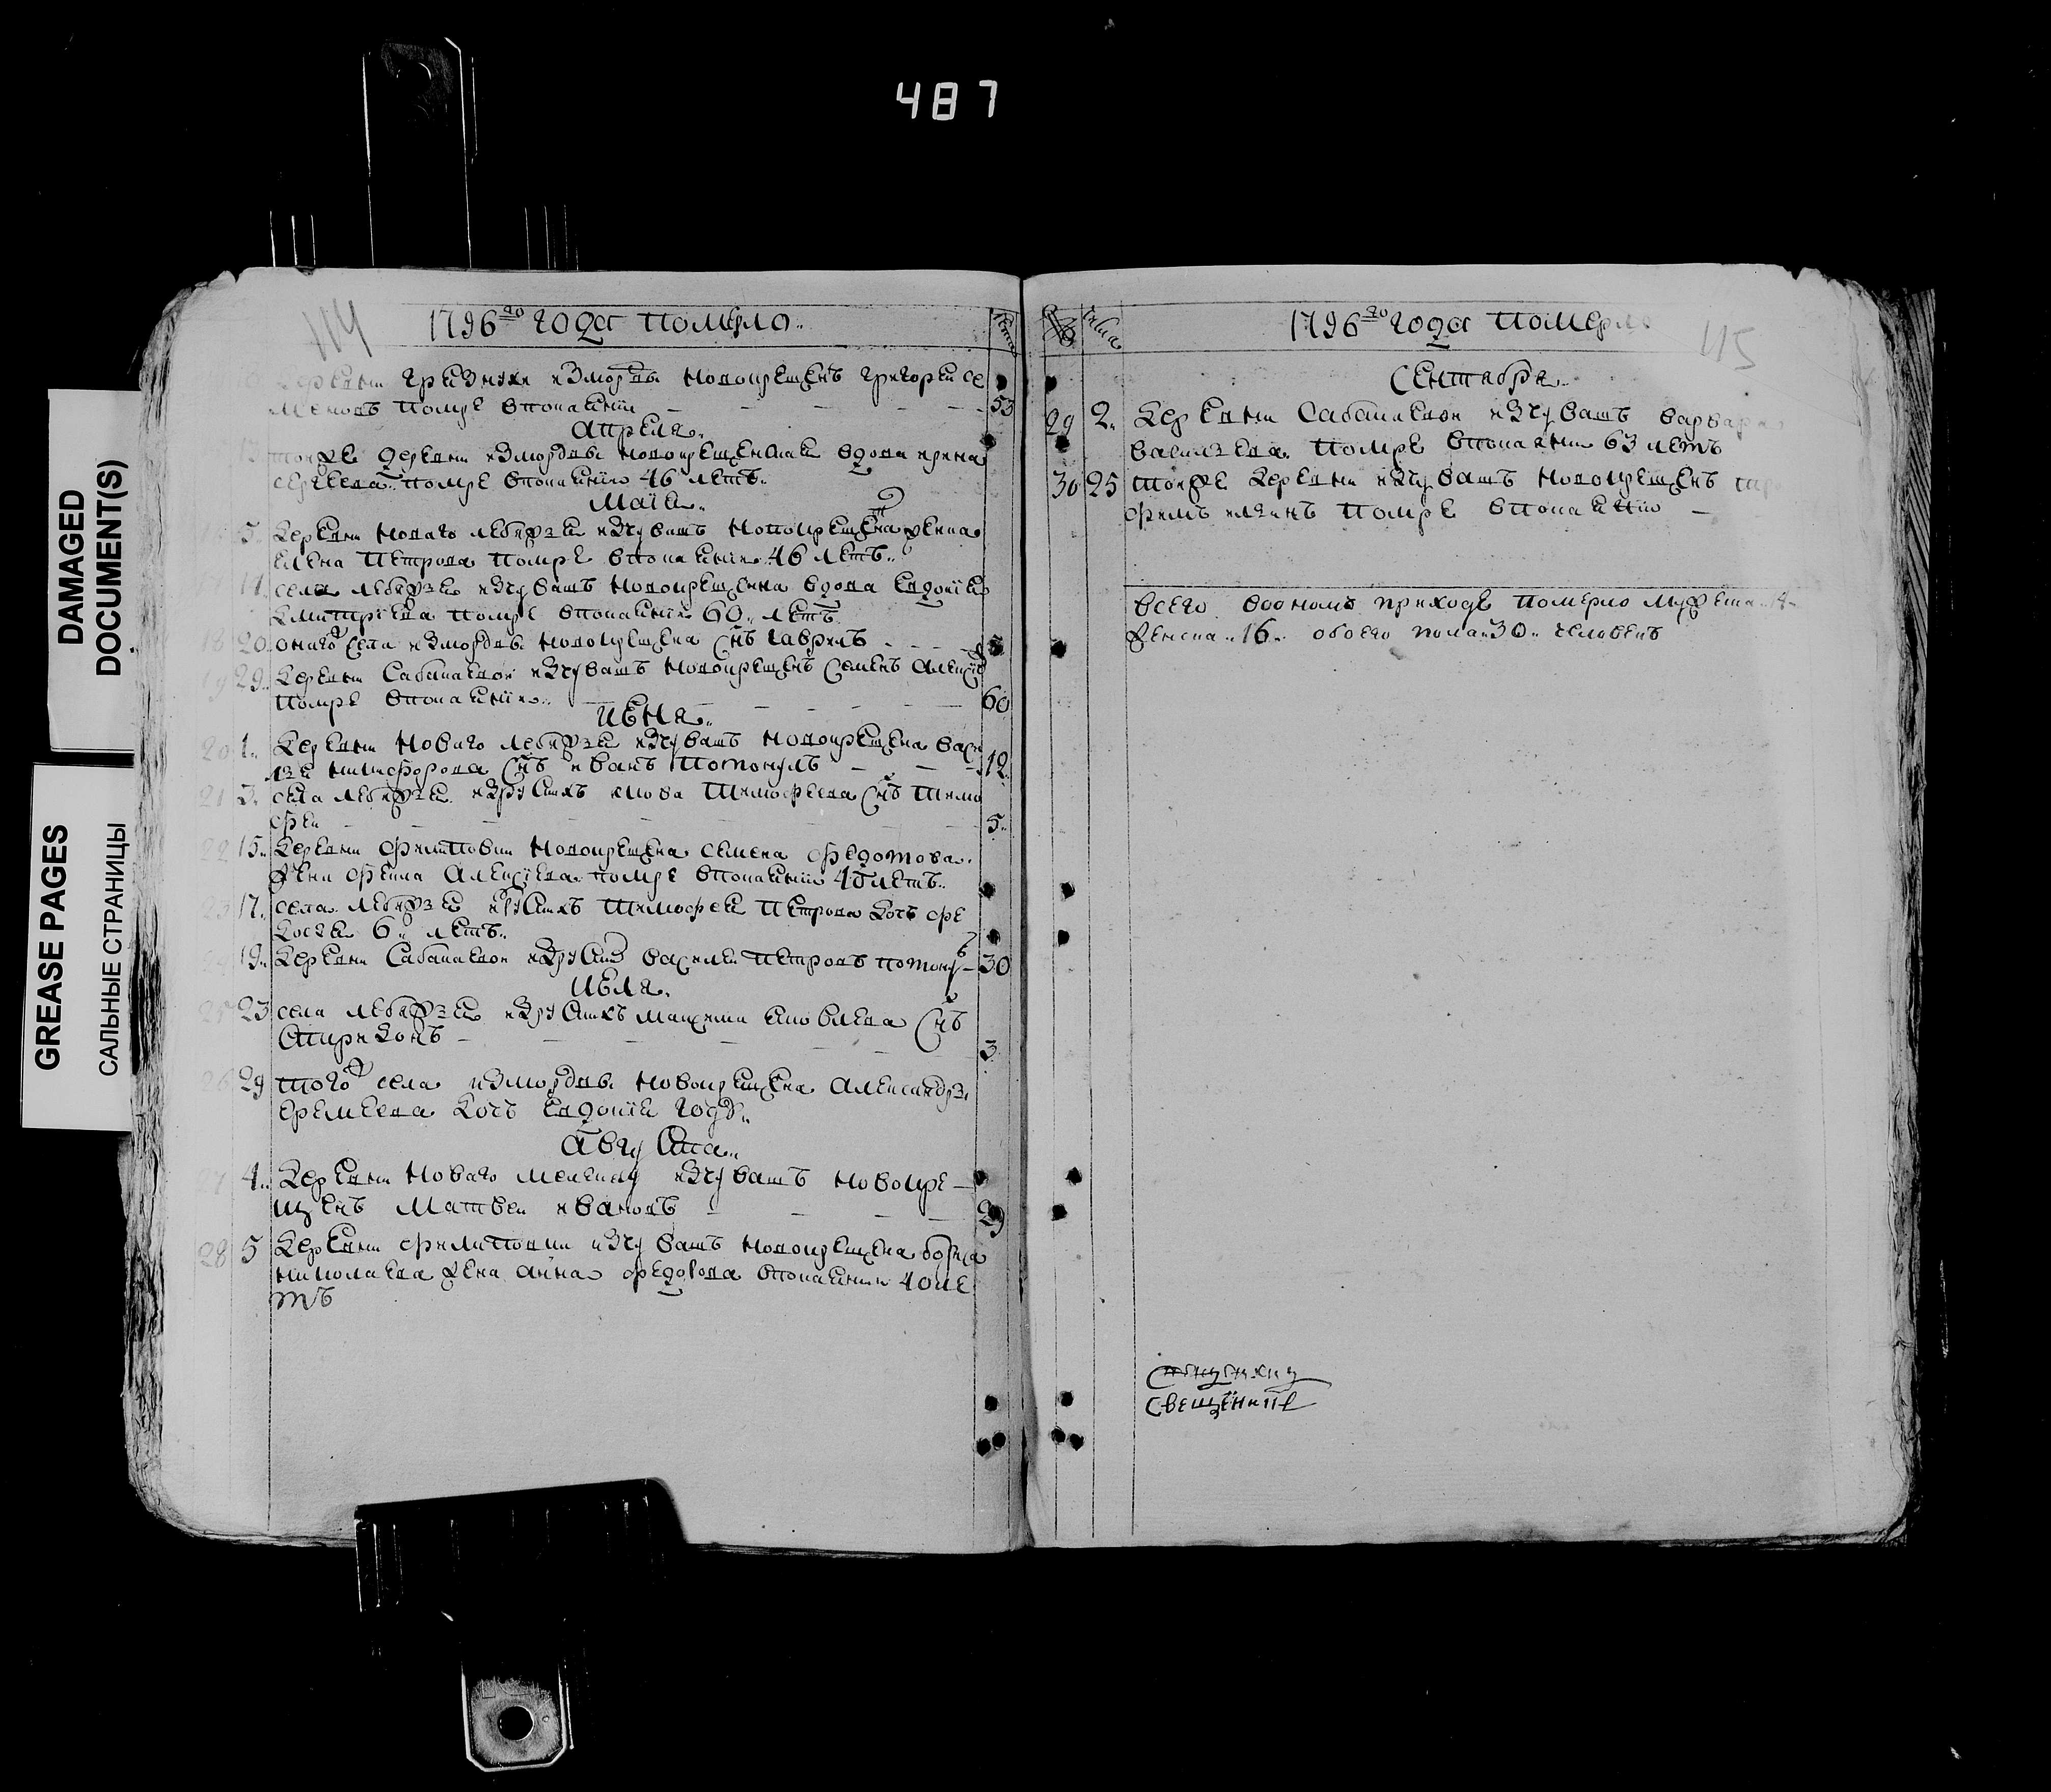 487
DAMAGED
DOCUMENT(S)
GREASE PAGES
САЛЬНЫЕ СТРАНИЦЫ
114
1796го года померло
лета
деревни Грязнухи из мордвы новокрещенъ Григорей Се
меновъ помре в покаянии 53
Апреля
тояже деревни из мордвы новокрещенская вдова Ирина
Сергеева помре в покаянии 46 летъ
Маiя
5 деревни Новаго Лебяжья из чувашъ новокрещена жена
Елена Петрова помре в покаянии 46 летъ
11 села Лебяжья из чувашъ новокрещенна вдова Евдокiя
Дмитрiева помре в покаянии 60 летъ
18 20 онаго села из мордвы новокрещена снъ Гаврилъ
19 29 деревни Сабакаевой из чувашъ новокрещенъ Семенъ Алексѣ
помре в покаянии 60
Июня
20 1 деревни Новаго Лебяжья из чувашъ новокрещена Васи
лья Никифорова снъ Иванъ потонулъ 12
21 3 села Лебяжья из рускихъ Тимофеева снъ Тимо
фей 5
22 15 деревни Филиповки новокрещена Семена Федотова
жена Фекла Алексiева помре в покаянии летъ
23 17 села Лебяжья из рускихъ Тимофея Петрова дочь Фе
досья 6 летъ
24 19 деревни Сабакаевой из руских Василей Петровъ потону 30
Июля
25 23 села Лебяжья из рускихъ Максима Яковлева снъ
Спиридонъ 3
26 29 того села из мордвы новокрещена Александра
Еремеева дочь Евдокiя году
Августа
27 4 деревни Новаго Мелекесу из чувашъ новокре
щенъ Матвей Ивановъ 29
28 5 деревни Филиповки из чувашъ новокрещена Бориса
Николаева жена Анна Федорова в покаянии 40 ле
тъ
115
1796го года померло
числа
Сентября
29 2 деревни Сабакаевой из чувашъ Варвара
Васильева помре в покаянии 63 летъ
30 25 тояже деревни из чувашъ новокрещенъ
помре в покаянии
Всего в ономъ приходе померло мужеска 14
женска 16 обоего пола 30 человекъ
священникъ